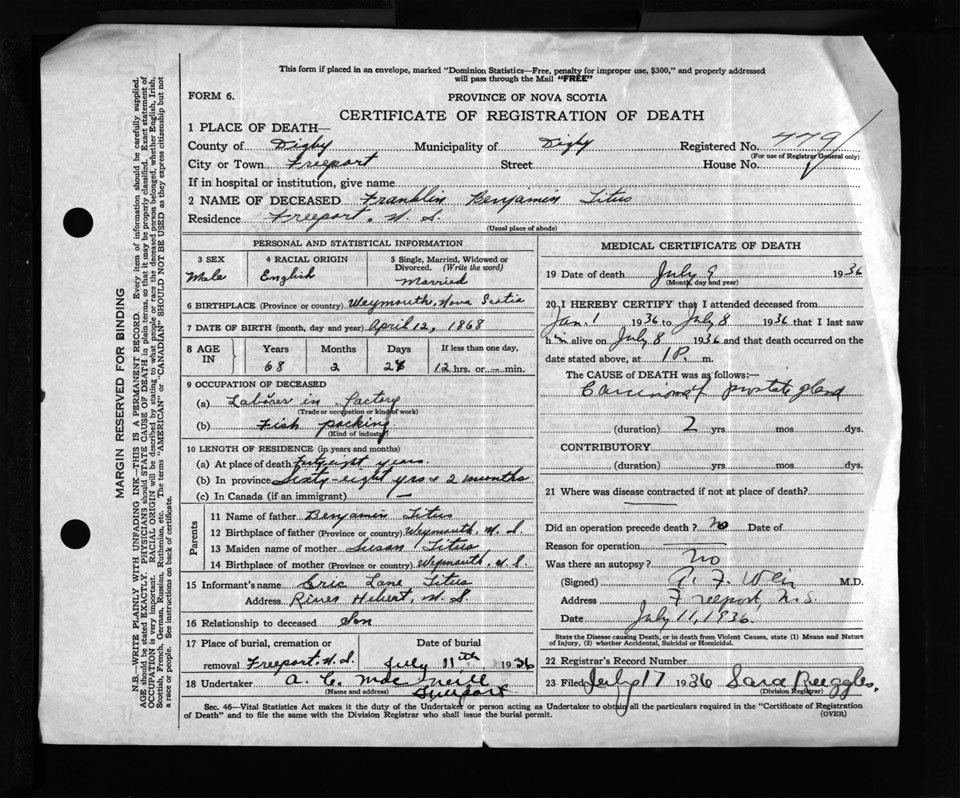 This form if placed in an envelope, marked "Dominion Statistics—Free, penalty for improper use, $300," and properly addressed
will pass through the Mail "FREE"
FORM 6.
PROVINCE OF NOVA SCOTIA
CERTIFICATE OF REGISTRATION OF DEATH
1 PLACE OF DEATH—
County of Digby Municipality of Digby Registered No. 779
(For use of Registrar General only)
City or Town Freeport Street House No.
If in hospital or institution, give name
2 NAME OF DECEASED Franklin Benjamin Titus
Residence Freeport. N. S.
(Usual place of abode)
PERSONAL AND STATISTICAL INFORMATION
3 SEX 4 RACIAL ORIGIN 5 Single, Married, Widowed or
Divorced. (Write the word)
Male English Married
6 BIRTHPLACE (Province or country) Weymouth, Nova Scotia
7 DATE OF BIRTH (month, day and year) April 12, 1868
8 AGE IN Years Months Days If less than one day,
68 2 12 hrs. or — min.
9 OCCUPATION OF DECEASED
(a) Laborer in Factory
(Trade or occupation or kind of work)
(b) Fish packing
(Kind of industry)
10 LENGTH OF RESIDENCE (in years and months)
(a) At place of death years.
(b) In province Sixty-eight yrs & 2 months
(c) In Canada (if an immigrant) —
Parents
11 Name of father Benjamin Titus
12 Birthplace of father (Province or country) Weymouth, N. S.
13 Maiden name of mother Susan Titus
14 Birthplace of mother (Province or country) Weymouth, N. S.
15 Informant's name Eric Lane Titus
Address River Hebert, N. S.
16 Relationship to deceased Son
17 Place of burial, cremation or Date of burial
removal Freeport. N. S. July 11th 1936
18 Undertaker A. C. MacNeill
(Name and address) Freeport
MEDICAL CERTIFICATE OF DEATH
19 Date of death July 9 1936
(Month, day and year)
20 I HEREBY CERTIFY that I attended deceased from
Jan. 1 1936 to July 8 1936 that I last saw
him alive on July 8 1936 and that death occurred on the
date stated above, at 1 P. m.
The CAUSE OF DEATH was as follows:—
Carcinoma of prostate gland
(duration) 2 yrs. mos. dys.
CONTRIBUTORY
(duration) yrs. mos. dys.
21 Where was disease contracted if not at place of death?
Did an operation precede death? no Date of
Reason for operation
Was there an autopsy? no
(Signed) A. F. Weir M.D.
Address Freeport, N.S.
Date July 11, 1936.
State the Disease causing Death, or in death from Violent Causes, state (1) Means and Nature
of Injury, (2) whether Accidental, Suicidal or Homicidal.
22 Registrar's Record Number
23 Filed July 17 1936 Sara Ruggles,
(Division Registrar)
Sec. 46—Vital Statistics Act makes it the duty of the Undertaker or person acting as Undertaker to obtain all the particulars required in the "Certificate of Registration
of Death" and to file the same with the Division Registrar who shall issue the burial permit.
(OVER)
MARGIN RESERVED FOR BINDING
N.B.—WRITE PLAINLY WITH UNFADING INK—THIS IS A PERMANENT RECORD. Every item of information should be carefully supplied.
AGE should be stated EXACTLY. PHYSICIANS should STATE CAUSE OF DEATH in plain terms, so that it may be properly classified. Exact statement of
OCCUPATION is very important. RACIAL ORIGIN will be described by stating to what people or race the deceased person belonged, whether English, Irish,
Scottish, French, German, Russian, Ruthenian, etc. The terms "AMERICAN" or "CANADIAN" SHOULD NOT BE USED as they express citizenship but not
a race or people. See instructions on back of certificate.